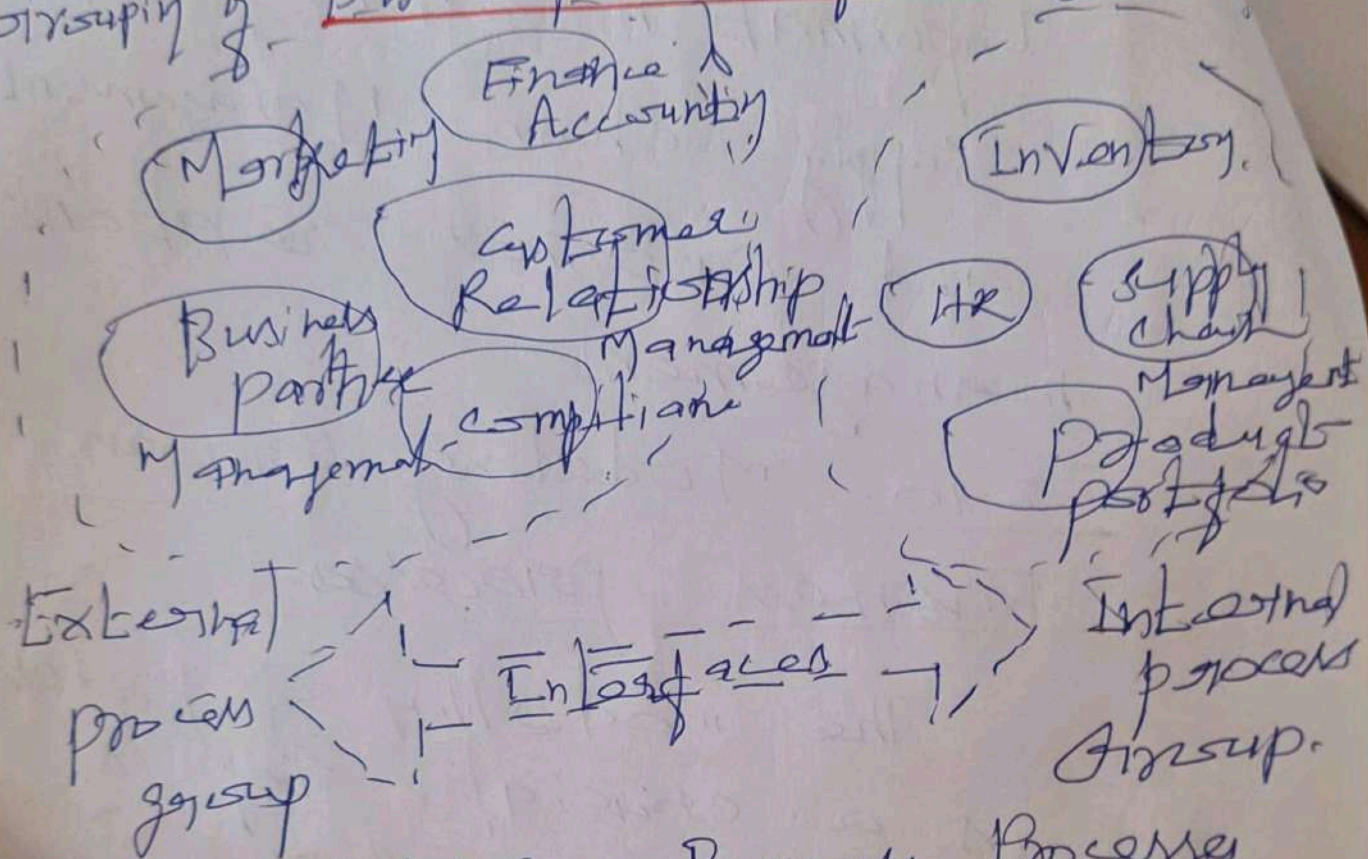 Grouping of
Finance &
Accounting
Marketing
Inventory.
Customer
Relationship
Management
HR
Supply
Chain
Management
Business
partner
Management
Compliance
Product
portfolio
External
process
group
Interfaces
Internal
process
Group.
Processes